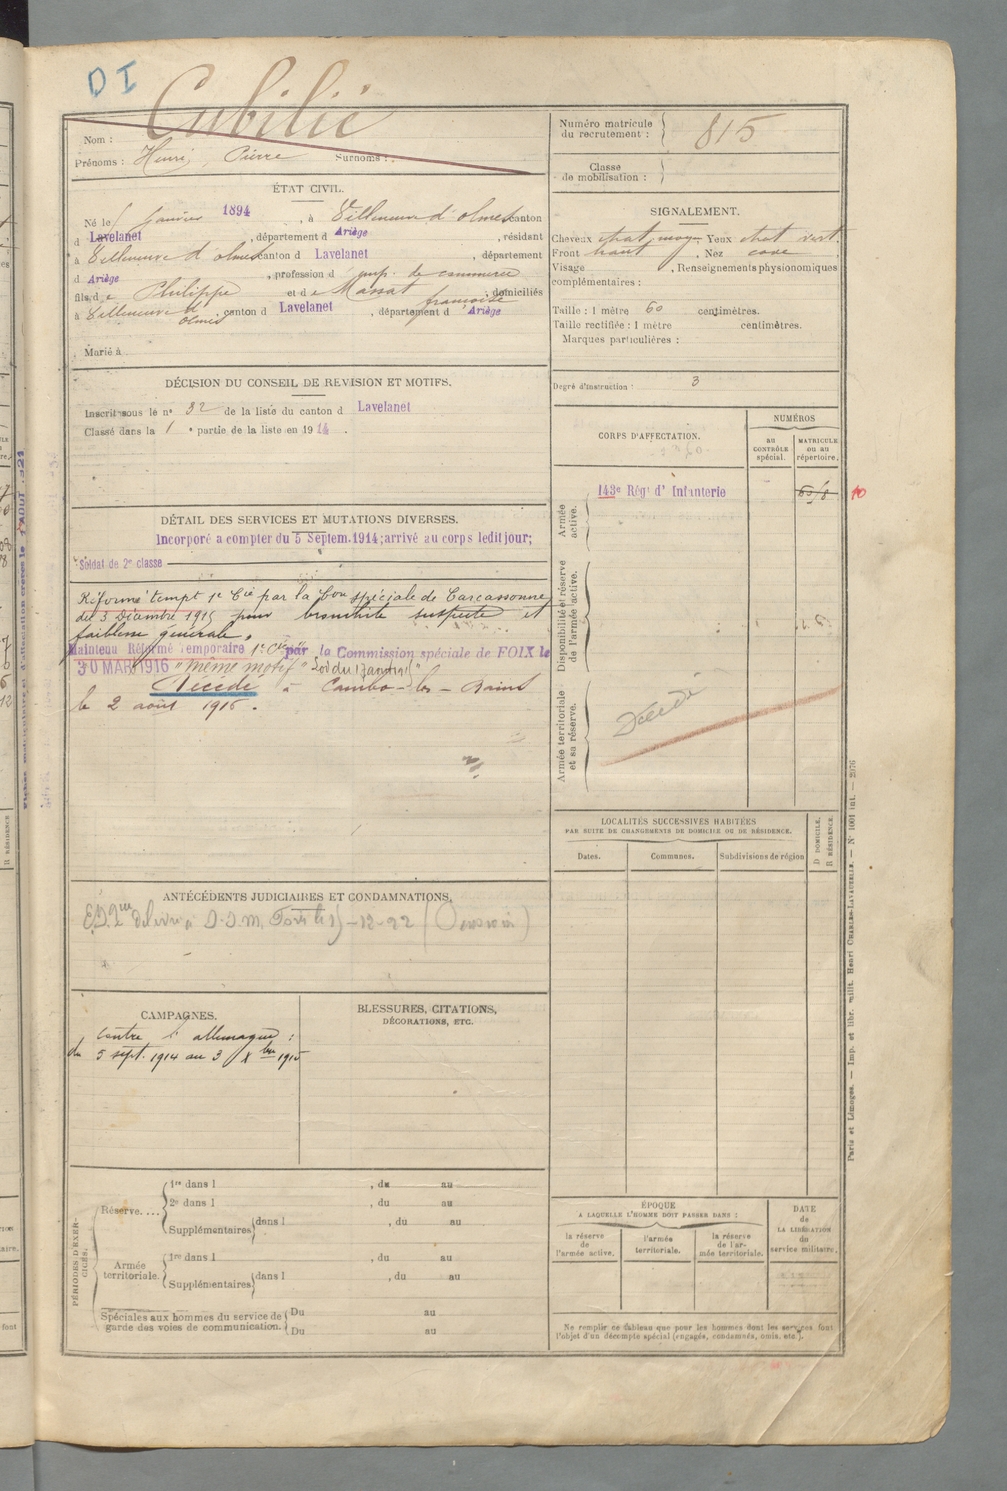 D I
Nom : Cubilié
Prénoms : Henri, Pierre Surnoms :
Numéro matricule
du recrutement : 815
Classe
de mobilisation :
ÉTAT CIVIL.
Né le janvier 1894, à Villeneuve d'olmes canton
d Lavelanet, département d Ariège, résidant
à Villeneuve d'olmes canton d Lavelanet, département
d Ariège, profession d emp. de commerce
fils de Philippe et de Massat françoise, domiciliés
à Villeneuve d'olmes canton d Lavelanet, département d Ariège
Marié à
SIGNALEMENT.
Cheveux chat. moy. Yeux chat vert.
Front haut, Nez cave,
Visage , Renseignements physionomiques
complémentaires :
Taille : 1 mètre 60 centimètres.
Taille rectifiée : 1 mètre centimètres.
Marques particulières :
Degré d'instruction : 3
DÉCISION DU CONSEIL DE REVISION ET MOTIFS.
Inscrit sous le n° 32 de la liste du canton d Lavelanet
Classé dans la 1e partie de la liste en 1914.
CORPS D'AFFECTATION.
NUMÉROS
AU
CONTRÔLE
spécial.
MATRICULE
ou au
répertoire.
Armée
active.
143e Régt d'Infanterie
Disponibilité et réserve
de l'armée active.
Armée territoriale
et sa réserve.
Décédé
DÉTAIL DES SERVICES ET MUTATIONS DIVERSES.
Incorporé a compter du 5 Septem. 1914; arrivé au corps ledit jour;
Soldat de 2e classe
Réformé tempt 1e Cie par la Con spéciale de Carcassonne
du 3 Décembre 1915 pour bronchite suspecte et
faiblesse générale.
Maintenu Réformé Temporaire 1e Cie par la Commission spéciale de FOIX le
30 MAR 1916 "même motif"
Décédé à Cambo-les-Bains
le 2 août 1916.
LOCALITÉS SUCCESSIVES HABITÉES
PAR SUITE DE CHANGEMENTS DE DOMICILE OU DE RÉSIDENCE.
Dates.
Communes.
Subdivisions de région
D DOMICILE.
R RÉSIDENCE.
ANTÉCÉDENTS JUDICIAIRES ET CONDAMNATIONS.
CAMPAGNES.
contre l'allemagne :
du 5 sept. 1914 au 3 Xbre 1915
BLESSURES, CITATIONS,
DÉCORATIONS, ETC.
PÉRIODES D'EXERCICES.
Réserve....
1re dans l , du au
2e dans l , du au
Supplémentaires dans l , du au
Armée
territoriale.
1re dans l , du au
Supplémentaires dans l , du au
Spéciales aux hommes du service de
garde des voies de communication.
Du au
Du au
ÉPOQUE
A LAQUELLE L'HOMME DOIT PASSER DANS :
la réserve
de
l'armée active.
l'armée
territoriale.
la réserve
de l'ar-
mée territoriale.
DATE
de
LA LIBÉRATION
du
service militaire.
Ne remplir ce tableau que pour les hommes dont les services font
l'objet d'un décompte spécial (engagés, condamnés, omis, etc.).
Paris et Limoges. — Imp. et libr. milit. Henri CHARLES-LAVAUZELLE. — N° 1001 int. — 2076